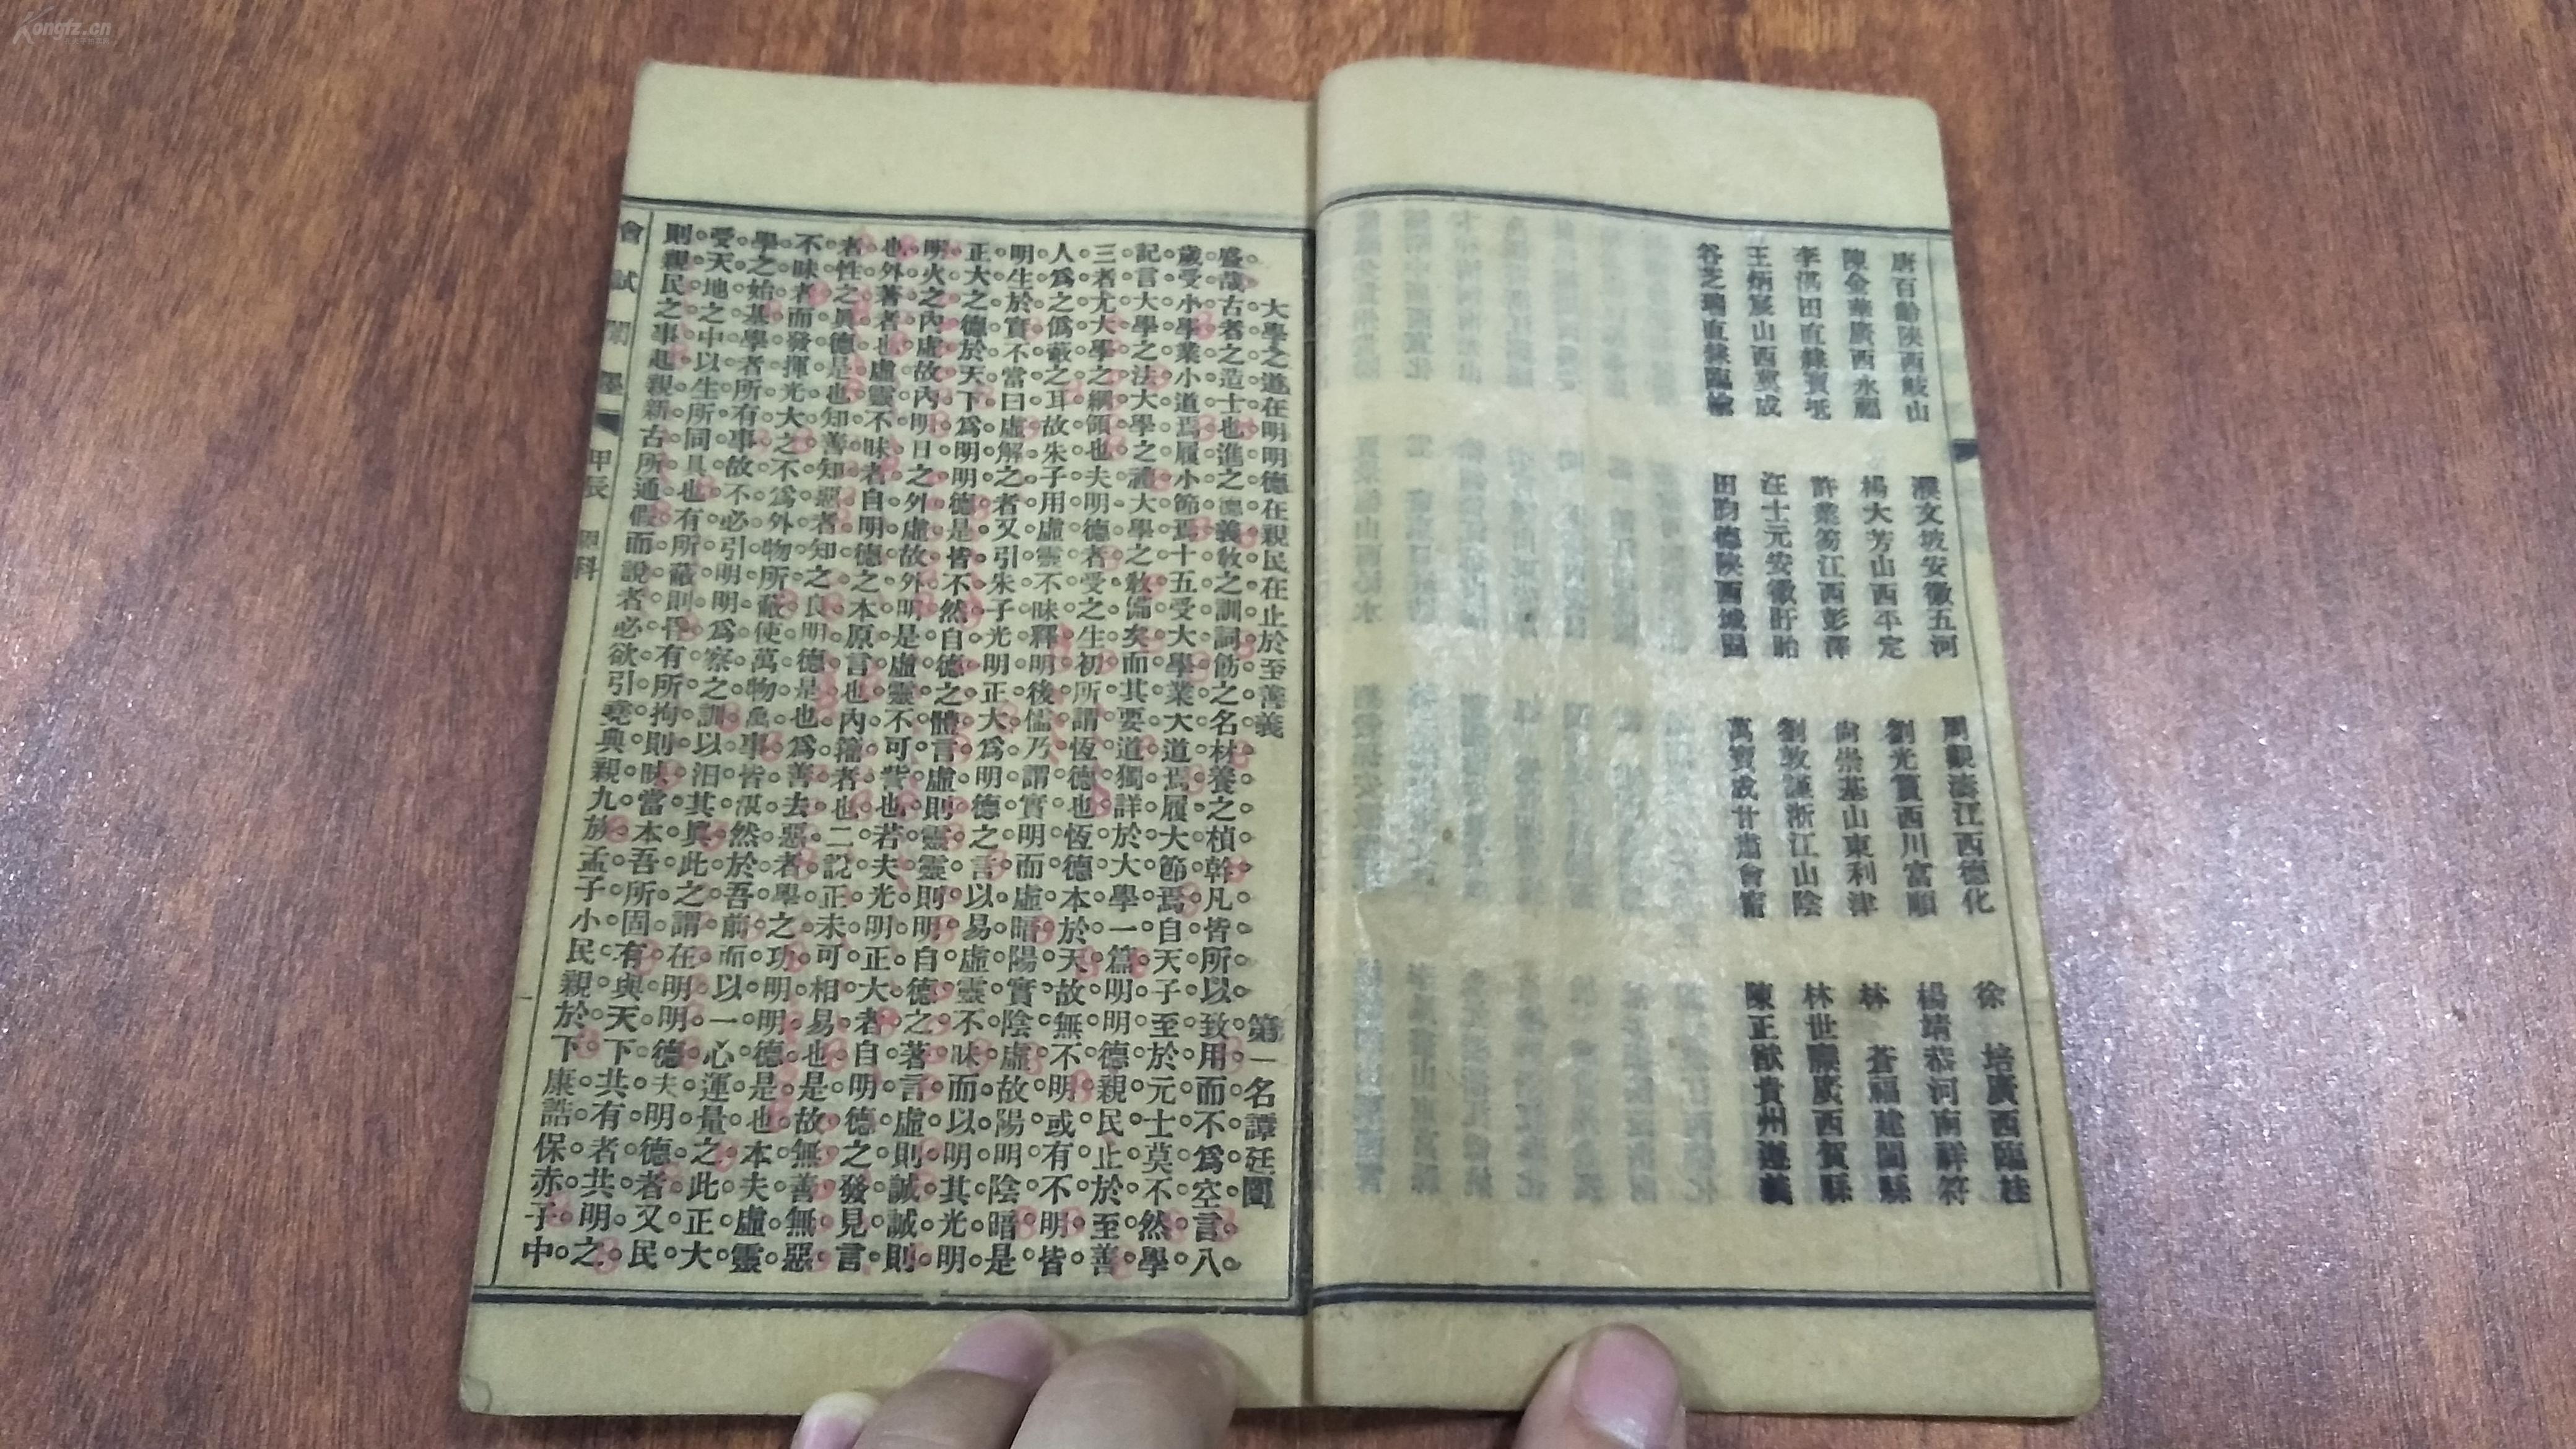 唐百齡陝西岐山 濮文坡安徽五河 周觀濤江西德化 徐 培廣西臨桂
陳金華廣西永福 楊大芳山西平定 劉光賁西川富順 楊靖恭河南祥符
李湛田直隸寶坻 許業笏江西彭澤 尚崇基山東利津 林 蒼福建閩縣
王炳宸山西 汪士元安徽盱眙 劉敦謹浙江山陰 林世燾廣西賀縣
谷芝瑞直隸臨榆 田毓德陝西城固 萬寶成甘肅會甯 陳正猷貴州遵義
大學之道在明明德在親民在止於至善義 第一名譚廷闓
盛哉古者之造士也進之德義敎之訓詞飭之名材養之楨幹凡皆所以致用而不爲空言八
歲受小學業小道焉履小節焉十五受大學業大道焉履大節焉自天子至於元士莫不然學
記言大學之法大學之禮大學之敎備矣而其要道獨詳於大學一篇明明德親民止於至善
三者尤大學之綱領也夫明德者受之生初所謂恆德也恆德本於天故無不明或有不明皆
人爲之僞蔽之耳故朱子用虛靈不昧釋明後儒乃謂實明而虛暗陽實陰虛故陽明陰暗是
明生於實不當曰虛解之者又引朱子光明正大爲明德之言以易虛靈不昧而以明其光明
正大之德於天下爲明明德是皆不然自德之體言虛則靈靈則明自德之著言虛則誠誠則
明火之內虛故內明日之外虛故外明是虛靈不可訾也若夫光明正大者自明德之發見言
也外著者也虛靈不昧者自明德之本原言也內蘊者也二說正未可相易也是故無善無惡
者性之眞德是也知善知惡者知之良明德是也爲善去惡者學之功明明德是也本夫虛靈
不昧者而發揮光大之不爲外物所蔽使萬物萬事皆湛然於吾前而以一心運量之此正大
學之始基學者所有事故不必引明明爲察之訓以汨其眞此之謂在明明德夫明德者又民
受天地之中以生所同具也有所蔽則昏有所拘則昧當本吾所固有與天下共有者共明之
則親民之事起親新古所通假而說者必欲引堯典親九族孟子小民親於下康誥保赤子中
會試闈墨 甲辰 甲科
Kongfz.cn